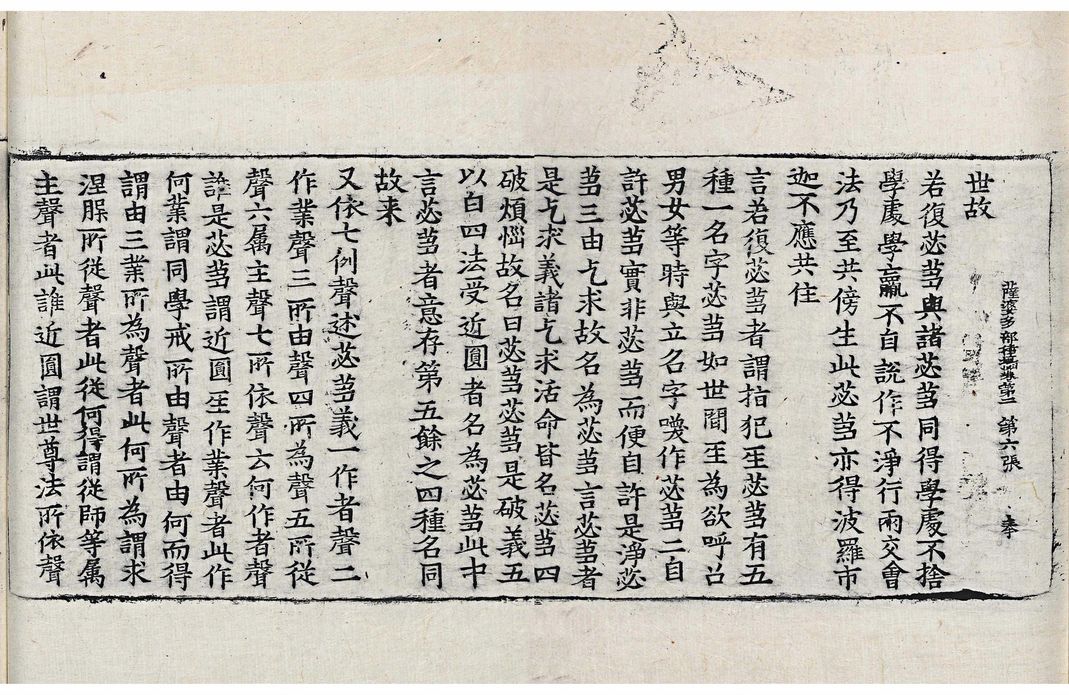 薩婆多部律攝卷第二 第六張 奉
世故
若復苾芻與諸苾芻同得學處不捨
學處學羸不自說作不淨行兩交會
法乃至共傍生此苾芻亦得波羅市
迦不應共住
言若復苾芻者謂指犯𤯔苾芻有五
種一名字苾芻如世間𤯔為欲呼召
男女等時與立名字喚作苾芻二自
許苾芻實非苾芻而便自許是淨苾
芻三由乞求故名為苾芻言苾芻者
是乞求義諸乞求活命皆名苾芻四
破煩惱故名曰苾芻苾芻是破義五
以白四法受近圓者名為苾芻此中
言苾芻者意存第五餘之四種名同
故来
又依七例聲述苾芻義一作者聲二
作業聲三所由聲四所為聲五所從
聲六属主聲七所依聲云何作者聲
誰是苾芻謂近圓𤯔作業聲者此作
何業謂同學戒所由聲者由何而得
謂由三業所為聲者此何所為謂求
涅槃所從聲者此從何得謂從師等属
主聲者此誰近圓謂世尊法所依聲